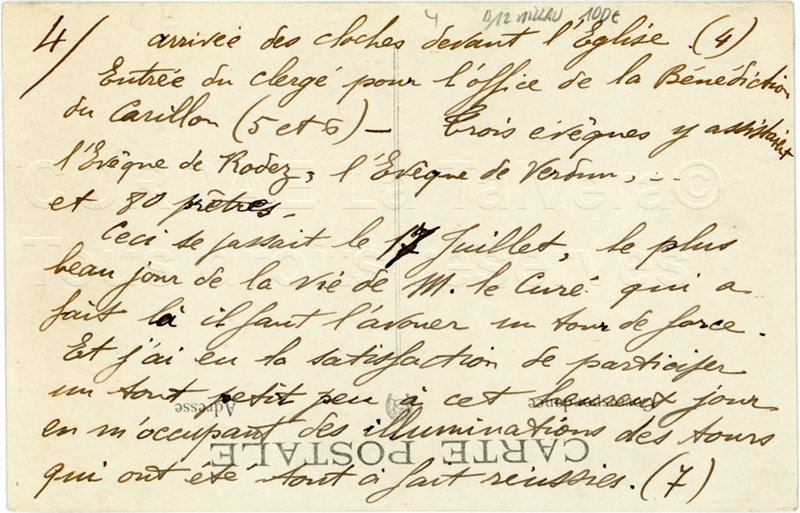 4 D12 MILLAU 10D€
4/ arrivée des cloches devant l'Église. (4)
Entrée du clergé pour l'office de la Bénédiction
du Carillon (5 et 6) — Trois évêques y assistaient
l'Évêque de Rodez, l'Evêque de Verdun, ...
et 80 prêtres.
Ceci se passait le 17 Juillet, le plus
beau jour de la vie de M. le Curé qui a
fait là il faut l'avouer un tour de force.
Et j'ai eu la satisfaction de participer
un tout petit peu à cet heureux jour
en m'occupant des illuminations des tours
qui ont été tout à fait réussies. (7)
CARTE POSTALE
Correspondance
Adresse
La Talvera©
Tous droits réservés